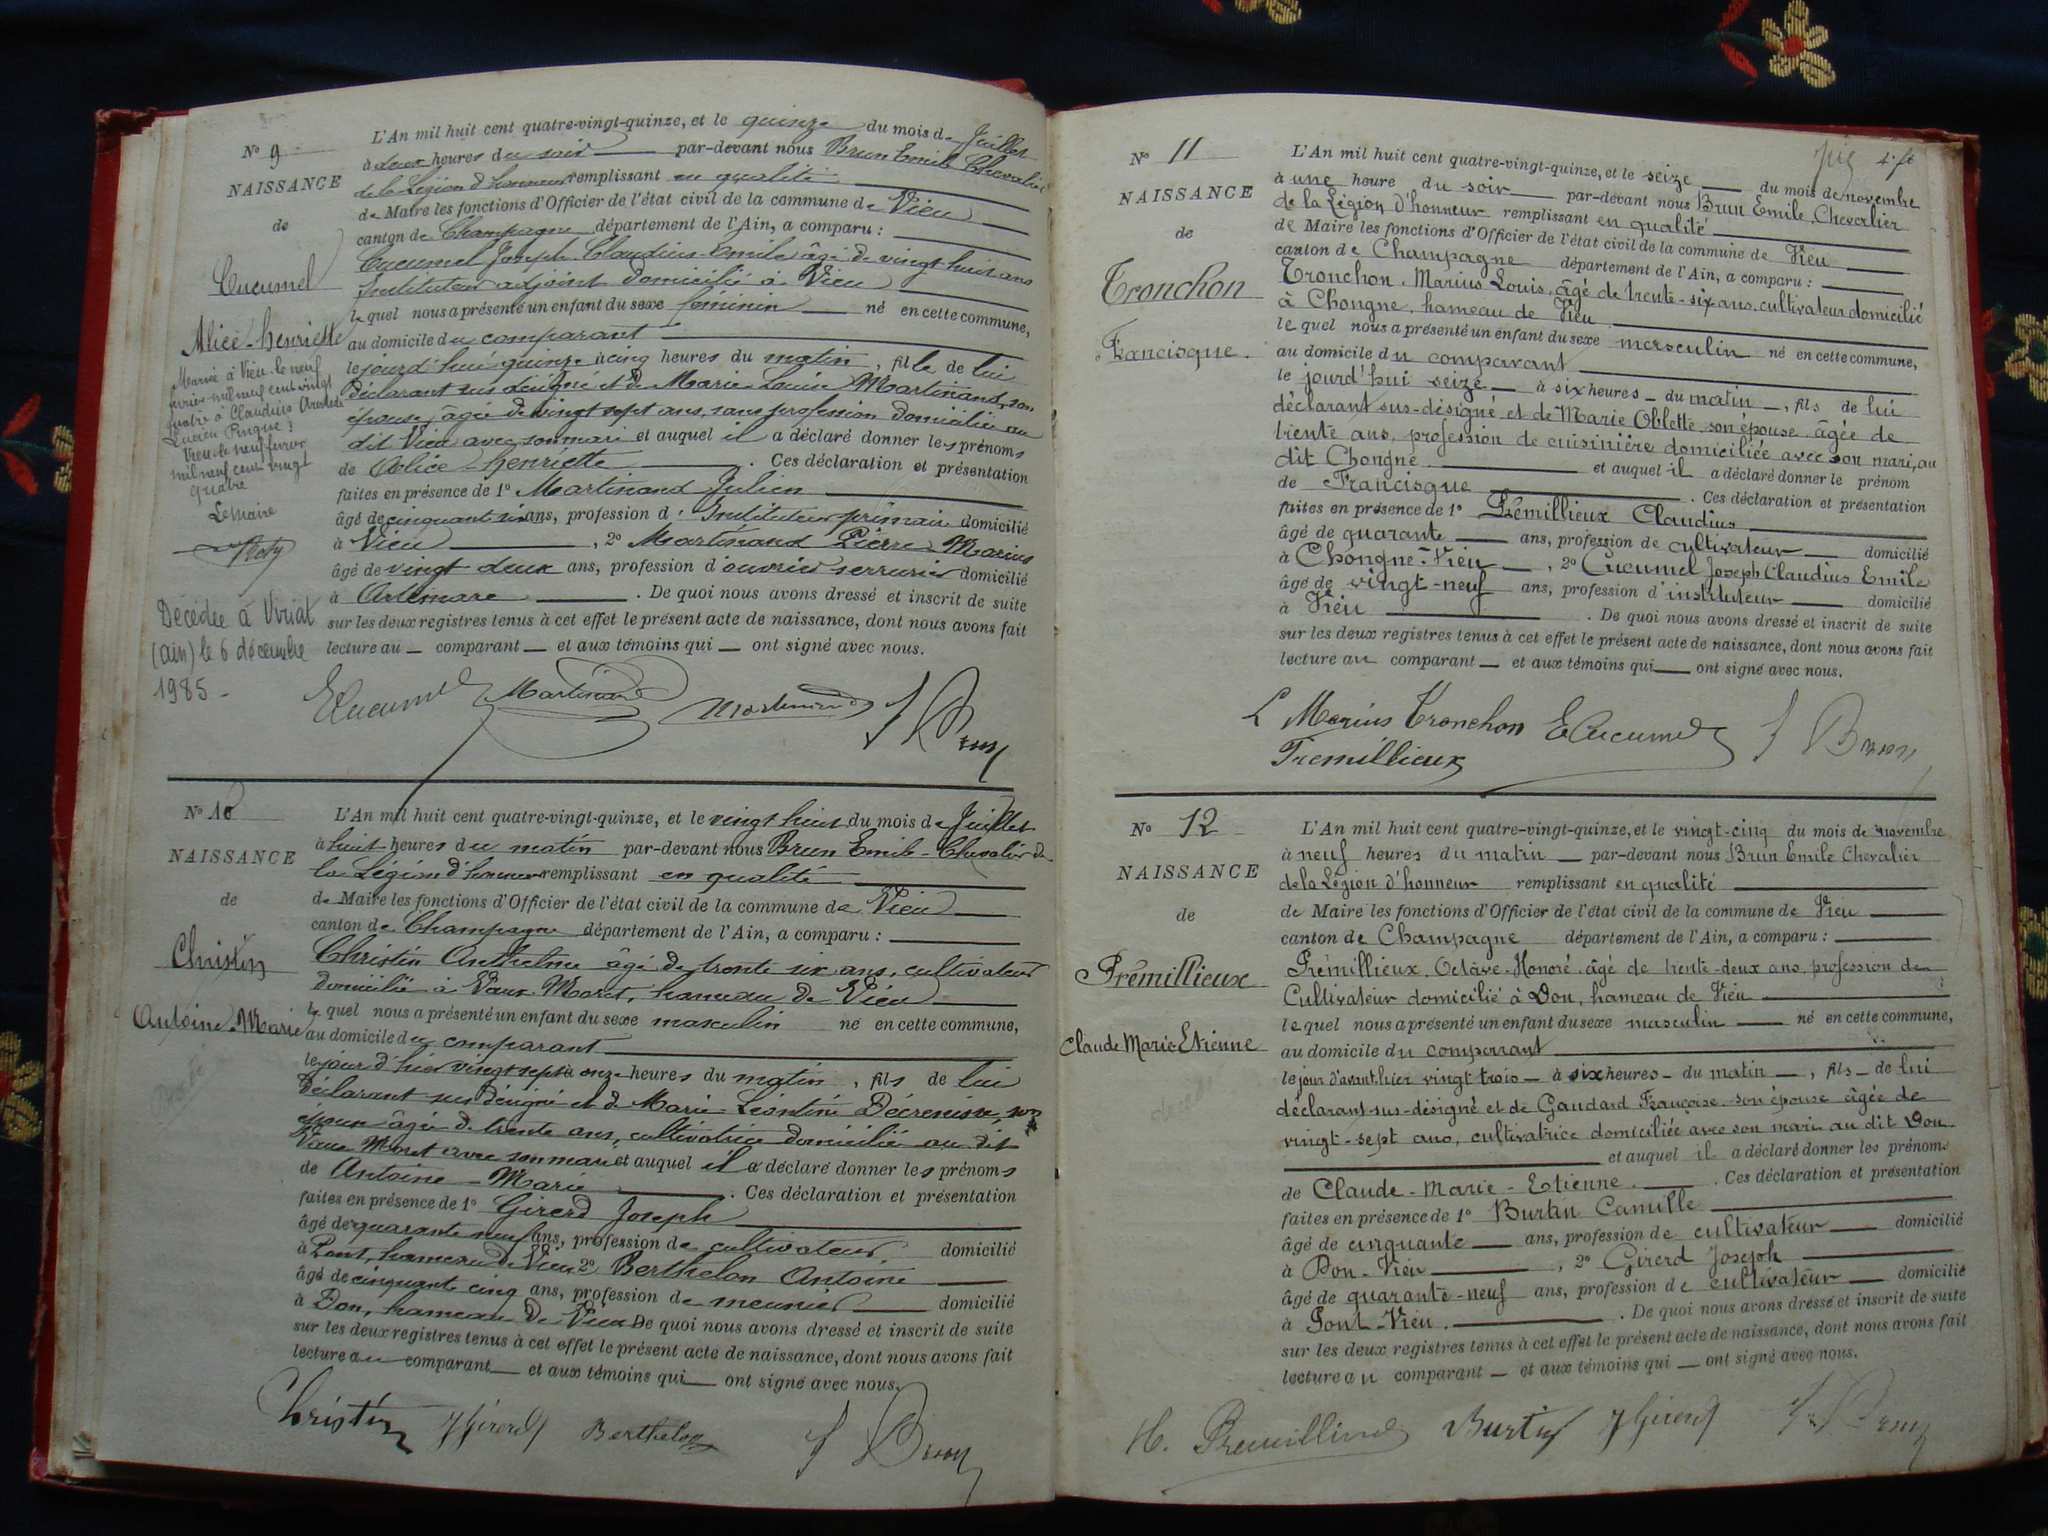 N° 9
NAISSANCE
de
Cucumel
Alice-Henriette
Mariée à Vieu le neuf
février mil neuf cent vingt
quatre à Claudius
Lucien
Vieu le neuf février
mil neuf cent vingt
quatre
Le Maire
Décédée à Viriat
(ain) le 6 décembre
1985 -
L'An mil huit cent quatre-vingt-quinze, et le quinze du mois de Juillet
à deux heures du soir par-devant nous Brun Emile Chevalier
de la Légion d'honneur remplissant en qualité
de Maire les fonctions d'Officier de l'état civil de la commune de Vieu
canton de Champagne département de l'Ain, a comparu :
Cucumel Joseph Claudius Emile âgé de vingt huit ans
Instituteur adjoint domicilié à Vieu
lequel nous a présenté un enfant du sexe féminin né en cette commune,
au domicile du comparant
le jourd'hui quinze à cinq heures du matin, fille de lui
déclarant sus désigné et de Marie Louise Martinand, son
épouse, âgée de vingt sept ans, sans profession domiciliée au
dit Vieu avec son mari et auquel il a déclaré donner les prénoms
de Alice-Henriette. Ces déclaration et présentation
faites en présence de 1° Martinand Julien
âgé de cinquant six ans, profession d' Instituteur primaire domicilié
à Vieu, 2° Martinand Pierre Marius
âgé de vingt deux ans, profession d'ouvrier serrurier domicilié
à Artemare. De quoi nous avons dressé et inscrit de suite
sur les deux registres tenus à cet effet le présent acte de naissance, dont nous avons fait
lecture au comparant et aux témoins qui ont signé avec nous.
ECucumel Martinand Martinand Brun
N° 10
NAISSANCE
de
Christin
Antoine-Marie
L'An mil huit cent quatre-vingt-quinze, et le vingt huit du mois de Juillet
à huit heures du matin par-devant nous Brun Emile-Chevalier de
la Légion d'honneur remplissant en qualité
de Maire les fonctions d'Officier de l'état civil de la commune de Vieu
canton de Champagne département de l'Ain, a comparu :
Christin Anthelme âgé de trente six ans, cultivateur
domicilié à Vaux-Moret, hameau de Vieu
lequel nous a présenté un enfant du sexe masculin né en cette commune,
au domicile du comparant
le jour d'hier vingt sept à onze heures du matin, fils de lui
déclarant sus désigné et de Marie Léontine Décrenisse, son
épouse âgée de trente ans, cultivatrice domiciliée au dit
Vaux Moret avec son mari et auquel il a déclaré donner les prénoms
de Antoine-Marie. Ces déclaration et présentation
faites en présence de 1° Girerd Joseph
âgé de quarante neuf ans, profession de cultivateur domicilié
à Pont, hameau de Vieu 2° Berthelon Antoine
âgé de cinquante cinq ans, profession de meunier domicilié
à Don, hameau de Vieu De quoi nous avons dressé et inscrit de suite
sur les deux registres tenus à cet effet le présent acte de naissance, dont nous avons fait
lecture au comparant et aux témoins qui ont signé avec nous.
Christin JGirerd Berthelon Brun
N° 11
NAISSANCE
de
Tronchon
Francisque.
L'An mil huit cent quatre-vingt-quinze, et le seize du mois de novembre
à une heure du soir par-devant nous Brun Emile Chevalier
de la Légion d'honneur remplissant en qualité
de Maire les fonctions d'Officier de l'état civil de la commune de Vieu
canton de Champagne département de l'Ain, a comparu :
Tronchon Marius Louis, âgé de trente-six ans, cultivateur domicilié
à Chongne, hameau de Vieu
lequel nous a présenté un enfant du sexe masculin né en cette commune,
au domicile du comparant
le jourd'hui seize à six heures du matin, fils de lui
déclarant sus-désigné et de Marie Oblette son épouse âgée de
trente ans, profession de cuisinière domiciliée avec son mari, au
dit Chongne et auquel il a déclaré donner le prénom
de Francisque. Ces déclaration et présentation
faites en présence de 1° Prémillieux Claudius
âgé de quarante ans, profession de cultivateur domicilié
à Chongne-Vieu, 2° Cucumel Joseph Claudius Emile
âgé de vingt-neuf ans, profession d'instituteur domicilié
à Vieu. De quoi nous avons dressé et inscrit de suite
sur les deux registres tenus à cet effet le présent acte de naissance, dont nous avons fait
lecture au comparant et aux témoins qui ont signé avec nous.
L Marius Tronchon ECucumel Brun
Premillieux
N° 12
NAISSANCE
de
Prémillieux
Claude Marie-Etienne
L'An mil huit cent quatre-vingt-quinze, et le vingt-cinq du mois de novembre
à neuf heures du matin par-devant nous Brun Emile Chevalier
de la Légion d'honneur remplissant en qualité
de Maire les fonctions d'Officier de l'état civil de la commune de Vieu
canton de Champagne département de l'Ain, a comparu :
Prémillieux Octave-Honoré âgé de trente-deux ans, profession de
Cultivateur domicilié à Don, hameau de Vieu
lequel nous a présenté un enfant du sexe masculin né en cette commune,
au domicile du comparant
le jour d'avant hier vingt trois à six heures du matin, fils de lui
déclarant sus-désigné et de Gandard Françoise son épouse âgée de
vingt-sept ans, cultivatrice domiciliée avec son mari au dit Don
et auquel il a déclaré donner les prénoms
de Claude-Marie-Etienne. Ces déclaration et présentation
faites en présence de 1° Burtin Camille
âgé de cinquante ans, profession de cultivateur domicilié
à Don-Vieu, 2° Girerd Joseph
âgé de quarante-neuf ans, profession de cultivateur domicilié
à Pont-Vieu. De quoi nous avons dressé et inscrit de suite
sur les deux registres tenus à cet effet le présent acte de naissance, dont nous avons fait
lecture au comparant et aux témoins qui ont signé avec nous.
H. Premillieux Burtin JGirerd Brun